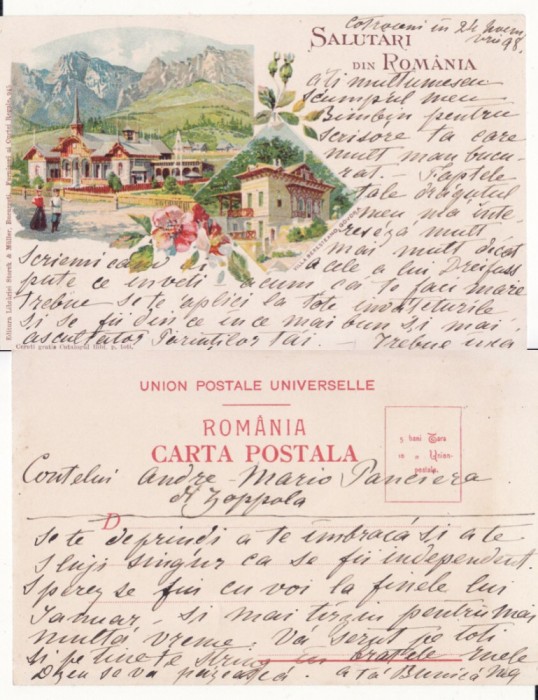 Copoceni în 24 Noem
vrie 98.
SALUTARI
DIN ROMÂNIA
îți multumescu
scumpul meu
Bimbin pentru
scrisore ta care
mult mau bucu
rat. - Faptele
tale drăguțul
meu ma inte-
resesă mult
mai mult decât
acele a lui Dreifuss
Scriemi ca
pute ce inveti acum, ca te faci mare
Trebue se te aplici la tote invățăturile
și se fii din ce in ce mai bun și mai
ascultător Părinților tăi. Trebue
Editura Librăriei Storck & Müller, Bucuresti,
Cereti gratis Catalogul ilus. p. toti.
UNION POSTALE UNIVERSELLE
ROMÂNIA
CARTA POSTALA
5 bani Tara
10 " Union-
postala.
Contelui Andre-Mario Panciera
di Zoppola
D
se te deprindi a te îmbracă și a te
sluji singur ca se fii independent.
Sper se fiu cu voi la finele lui
Ianuar, și mai tirziu pentru mai
multă vreme. Vă serut pe toti
și pe tine te string in bratele mele
Dzeu se vă păzească. a tă Bunică